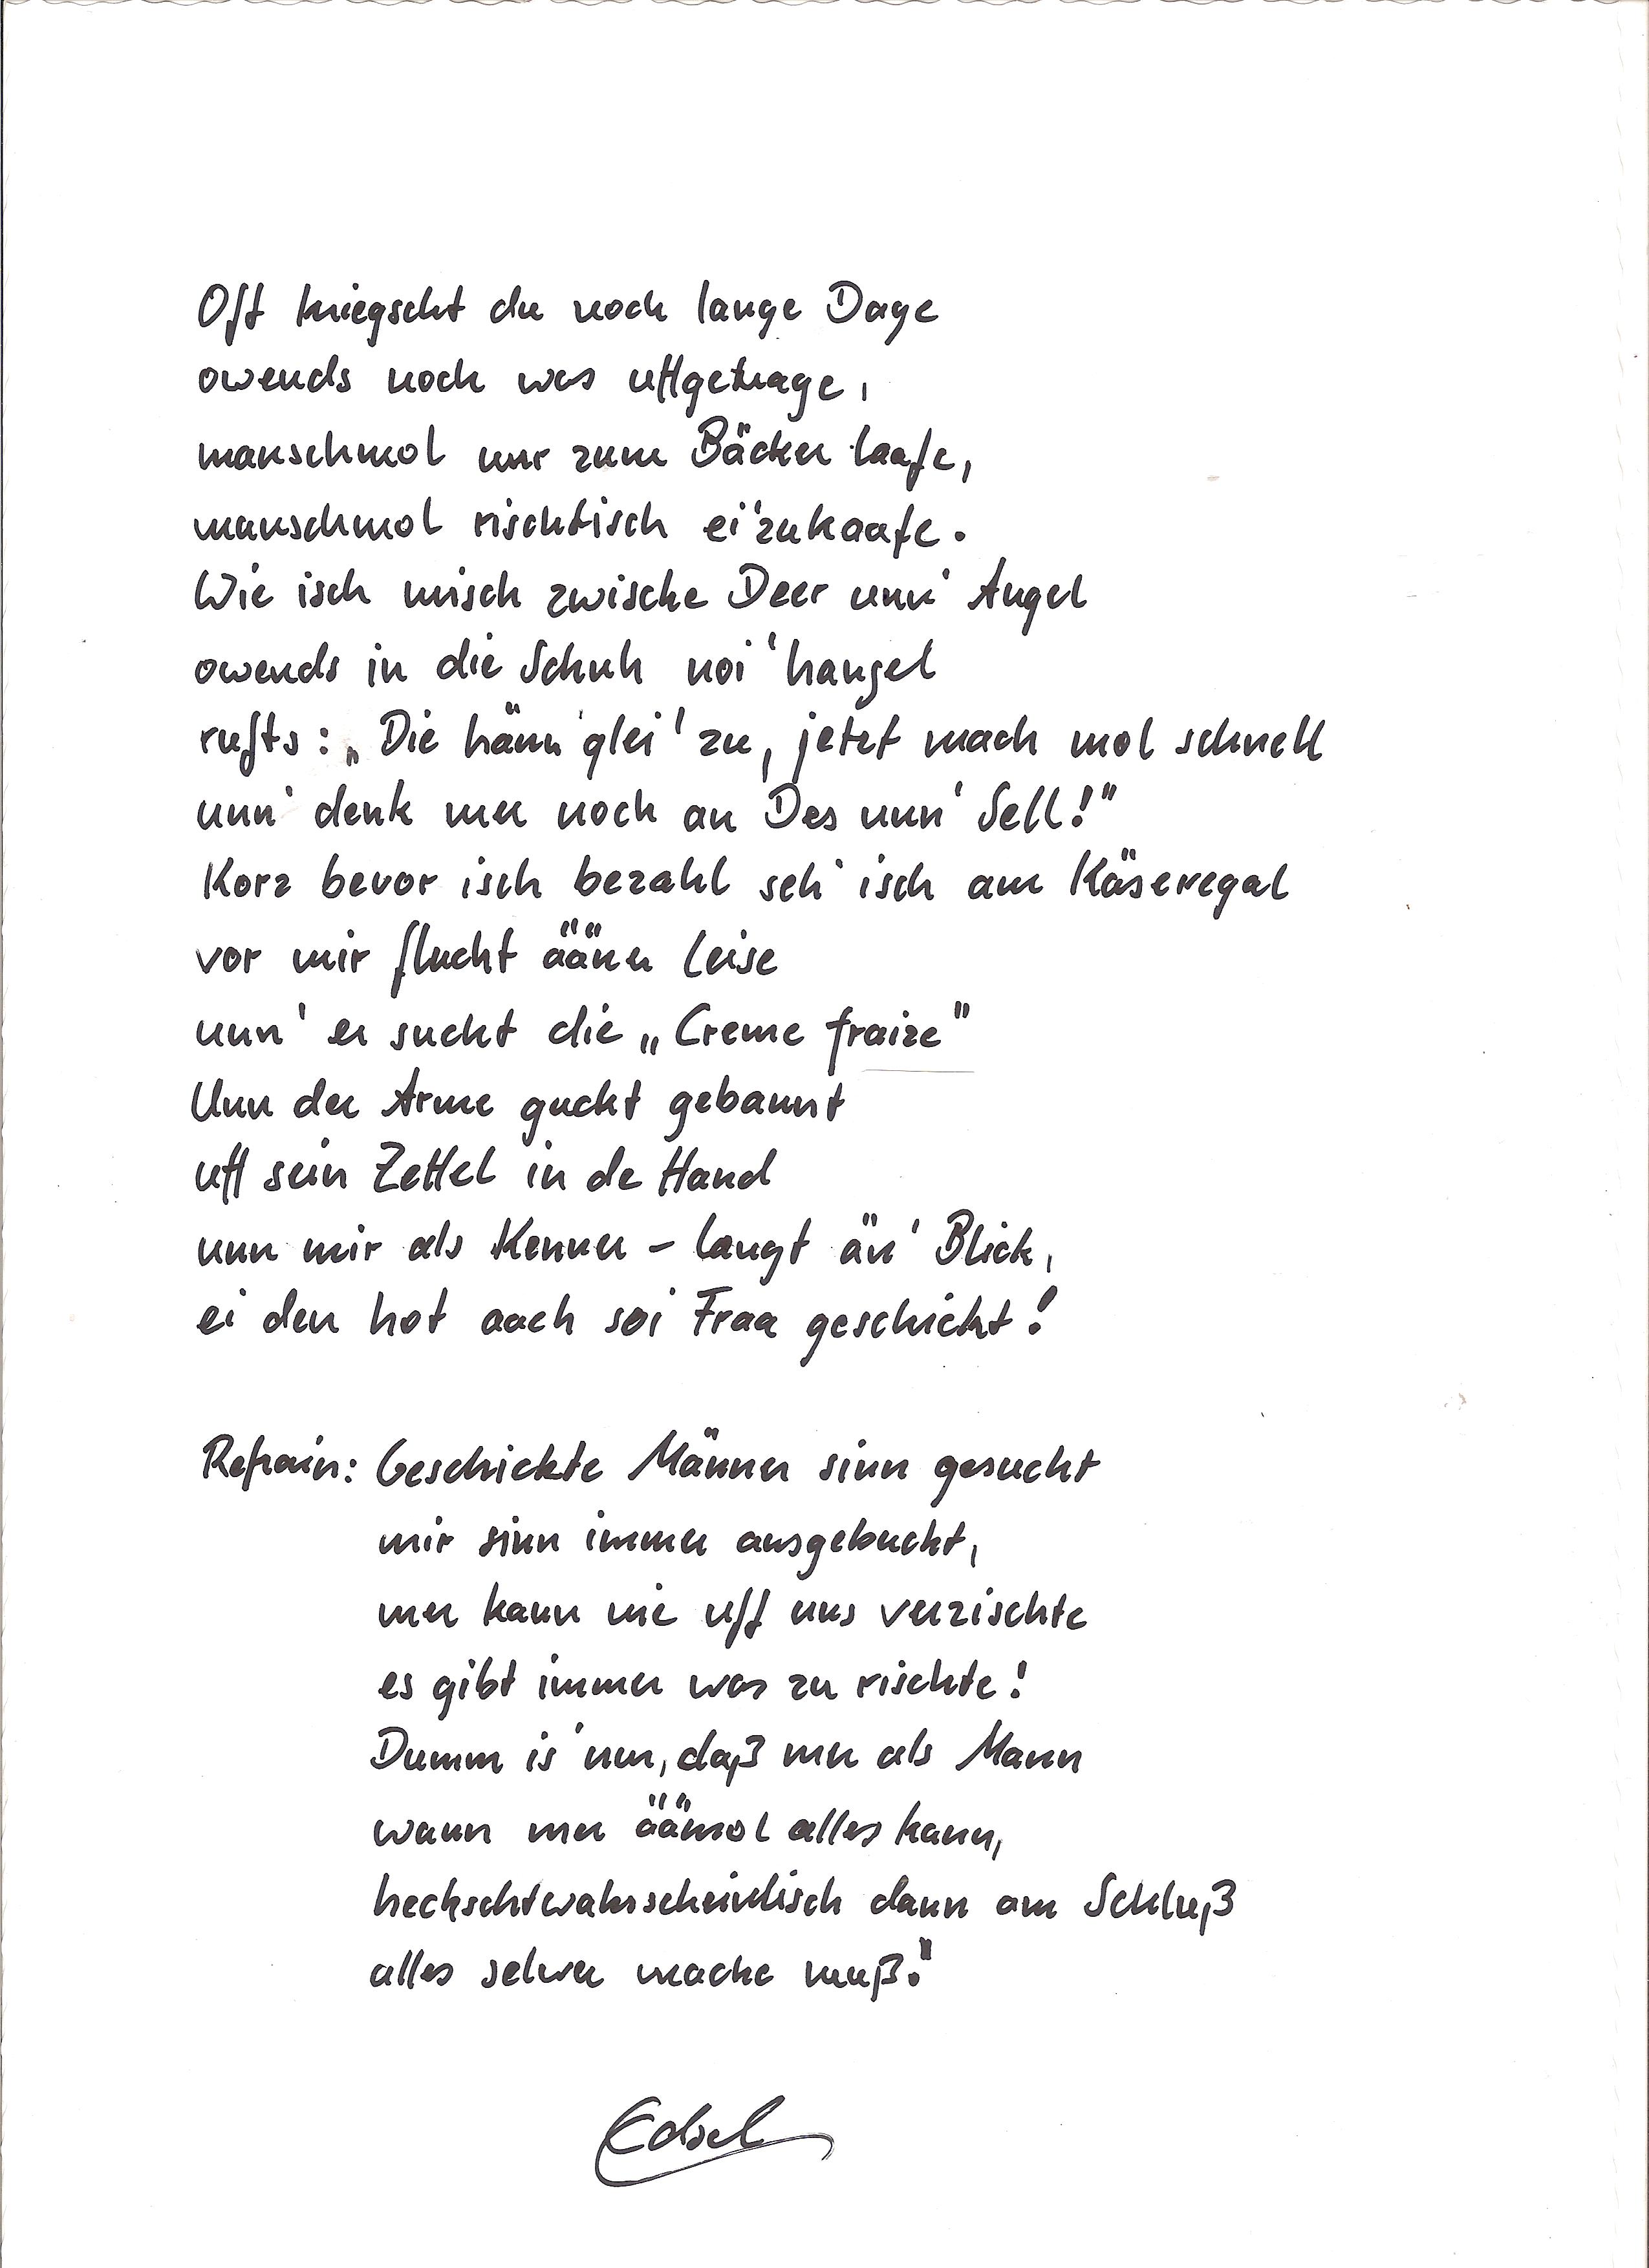 Oft kriegscht du noch lange Dage
owends noch was uffgetrage,
manschmol nur zum Bäcker laafe,
manschmol rischtisch ei'zukaafe.
Wie isch misch zwische Deer unn' Angel
owends in die Schuh noi'hangel
rufts: „Die hänn' glei' zu, jetzt mach mol schnell
unn' denk mer noch an Des unn' Sell!"
Korz bevor isch bezahl seh' isch am Käseregal
vor mir flucht ääner leise
unn' er sucht die „Creme fraize"
Unn der Arme guckt gebannt
uff sein Zettel in de Hand
unn mir als Kenner - langt än' Blick,
ei den hot aach soi Fraa geschickt!
Refrain: Geschickte Männer sinn gesucht
mir sinn immer ausgebucht,
mer kann nie uff uns verzischte
es gibt immer was zu rischte!
Dumm is' nur, daß mer als Mann
wann mer äämol alles kann,
heckschtwahrscheinlisch dann am Schluß
alles selwer mache muß."
Edsel